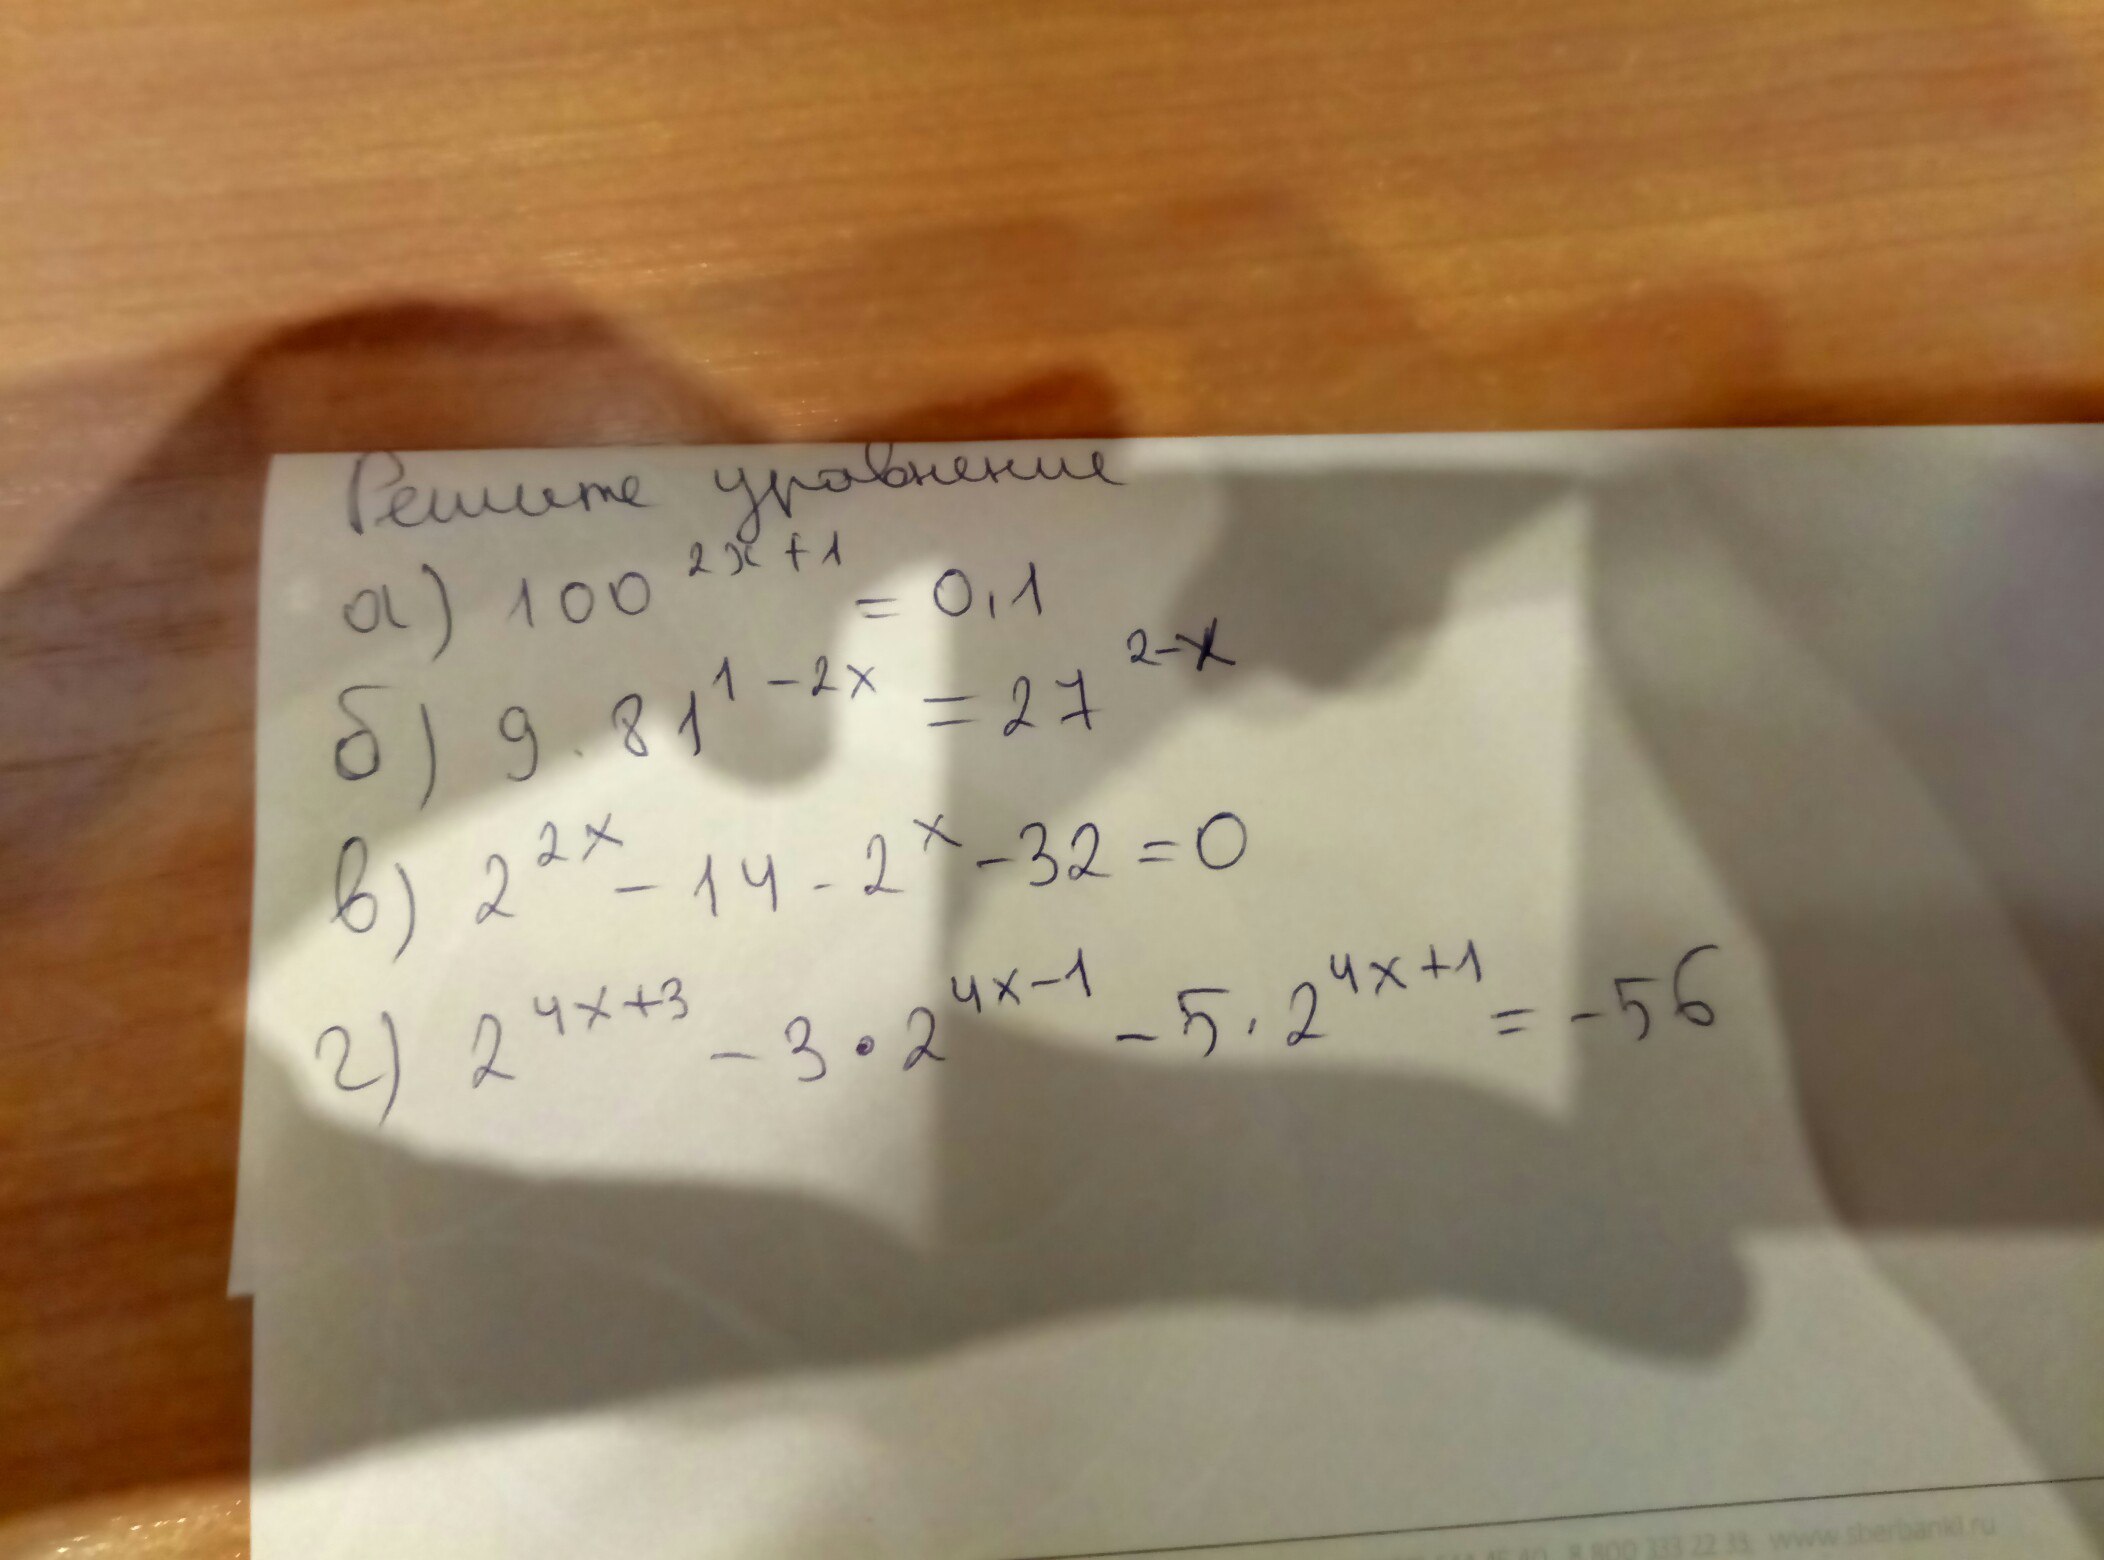 Решите уравнение
а) 100^{2x+1} = 0,1
б) 9 · 81^{1-2x} = 27^{2-x}
в) 2^{2x} - 14 - 2^{x} - 32 = 0
г) 2^{4x+3} - 3 · 2^{4x-1} - 5 · 2^{4x+1} = -56
8 800 333 22 33, www.sberbank1.ru